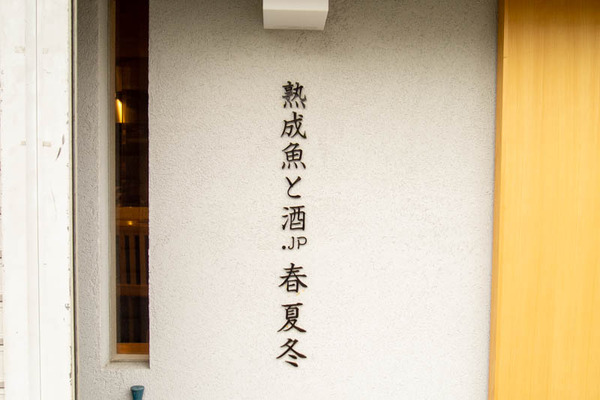 熟成魚と酒.JP 春夏冬